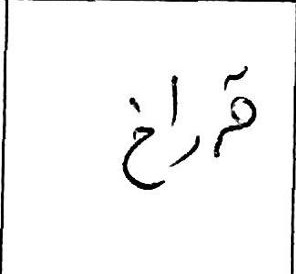 قراخ